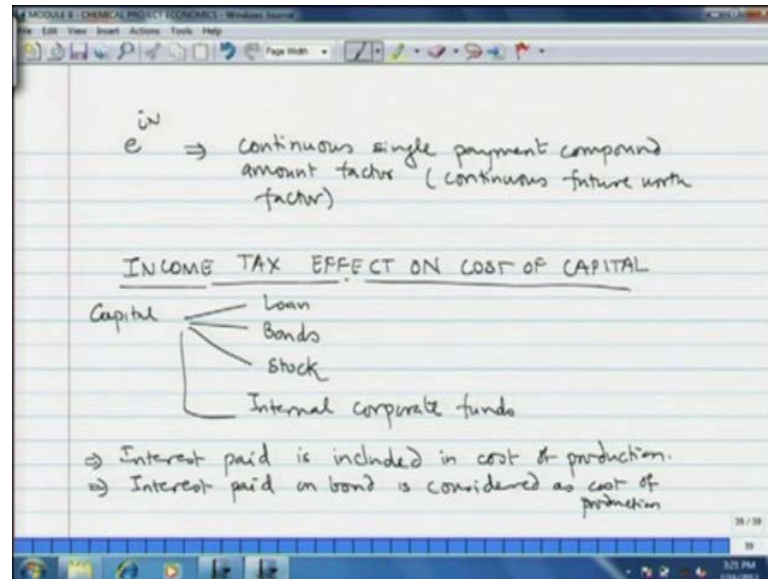 MODULE 8 - CHEMICAL PROJECT ECONOMICS - Windows Journal
File Edit View Insert Actions Tools Help
Page Width
e^iN ⇒ continuous single payment compound
amount factor (continuous future worth
factor)
INCOME TAX EFFECT ON COST OF CAPITAL
Capital
Loan
Bonds
Stock
Internal corporate funds
⇒ Interest paid is included in cost of production.
⇒ Interest paid on bond is considered as cost of
production
38 / 38
38
5:21 PM